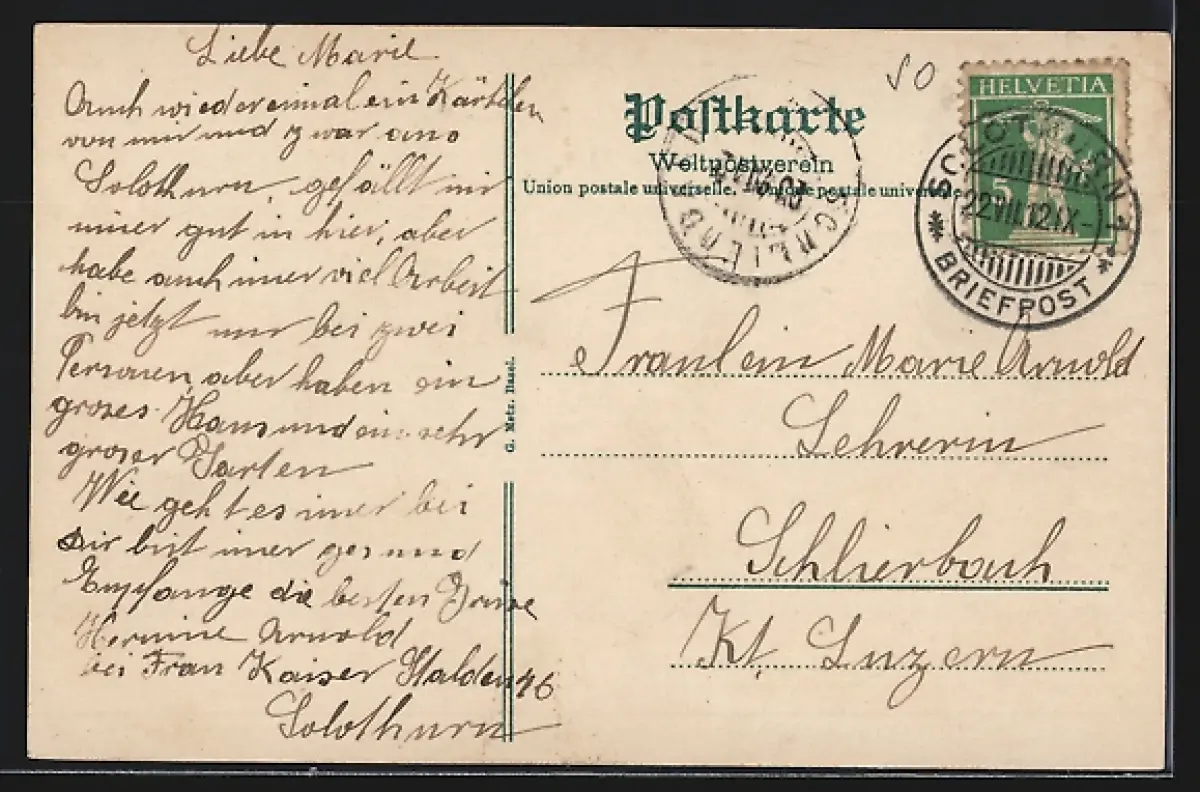 Liebe Marie
Auch wieder einmal ein Kärtchen
von mir und zwar aus
Solothurn, gefällt mir
imer gut in hier, aber
habe auch imer viel Arbeit
bin jetzt nur bei zwei
Personen, aber haben ein
groses Haus und ein sehr
groser Garten
Wie geht es imer bei
dir bist imer gesund
Empfange die besten Grüse
Hermine Arnold
bei Frau Kaiser Stalden 46
Solothurn
G. Metz. Basel.
Postkarte
Weltpostverein
Union postale universelle. Unione postale universale
50
HELVETIA
5
SOLOTHURN 1
22.VII.12.IX-
BRIEFPOST
SCHLIERBACH
Fräulein Marie Arnold
Lehrerin
Schlierbach
Kt. Luzern